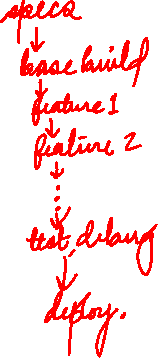 specs
base build
feature 1
feature 2
test, debug
deploy.